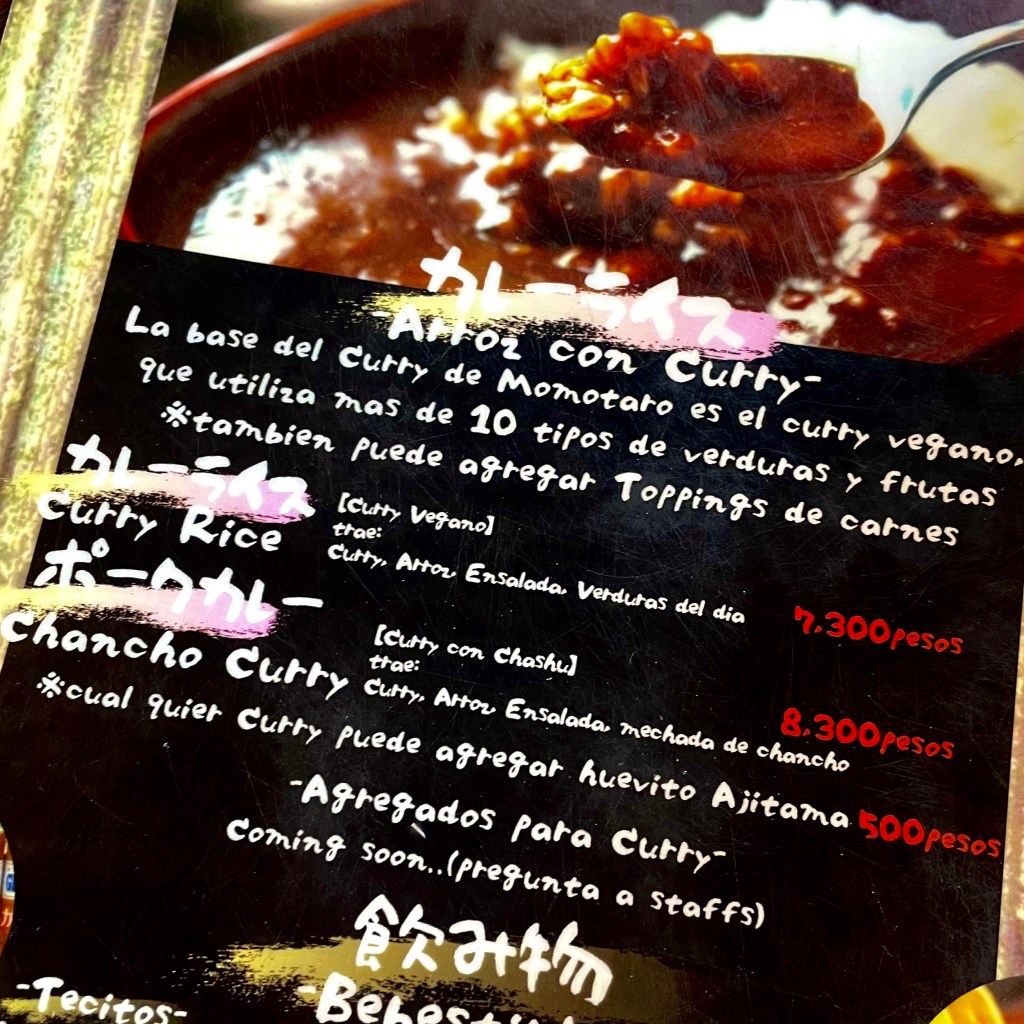 カレーライス
-Arroz con Curry-
La base del Curry de Momotaro es el curry vegano,
que utiliza mas de 10 tipos de verduras y frutas
※tambien puede agregar Toppings de carnes
カレーライス
Curry Rice
[Curry Vegano]
trae:
Curry, Arroz, Ensalada, Verduras del dia
7,300pesos
ポークカレー
Chancho Curry
[Curry con Chashu]
trae:
Curry, Arroz, Ensalada, mechada de chancho
8,300pesos
※cual quier Curry puede agregar huevito Ajitama 500pesos
-Agregados para Curry-
Coming soon..(pregunta a staffs)
飲み物
-Tecitos-